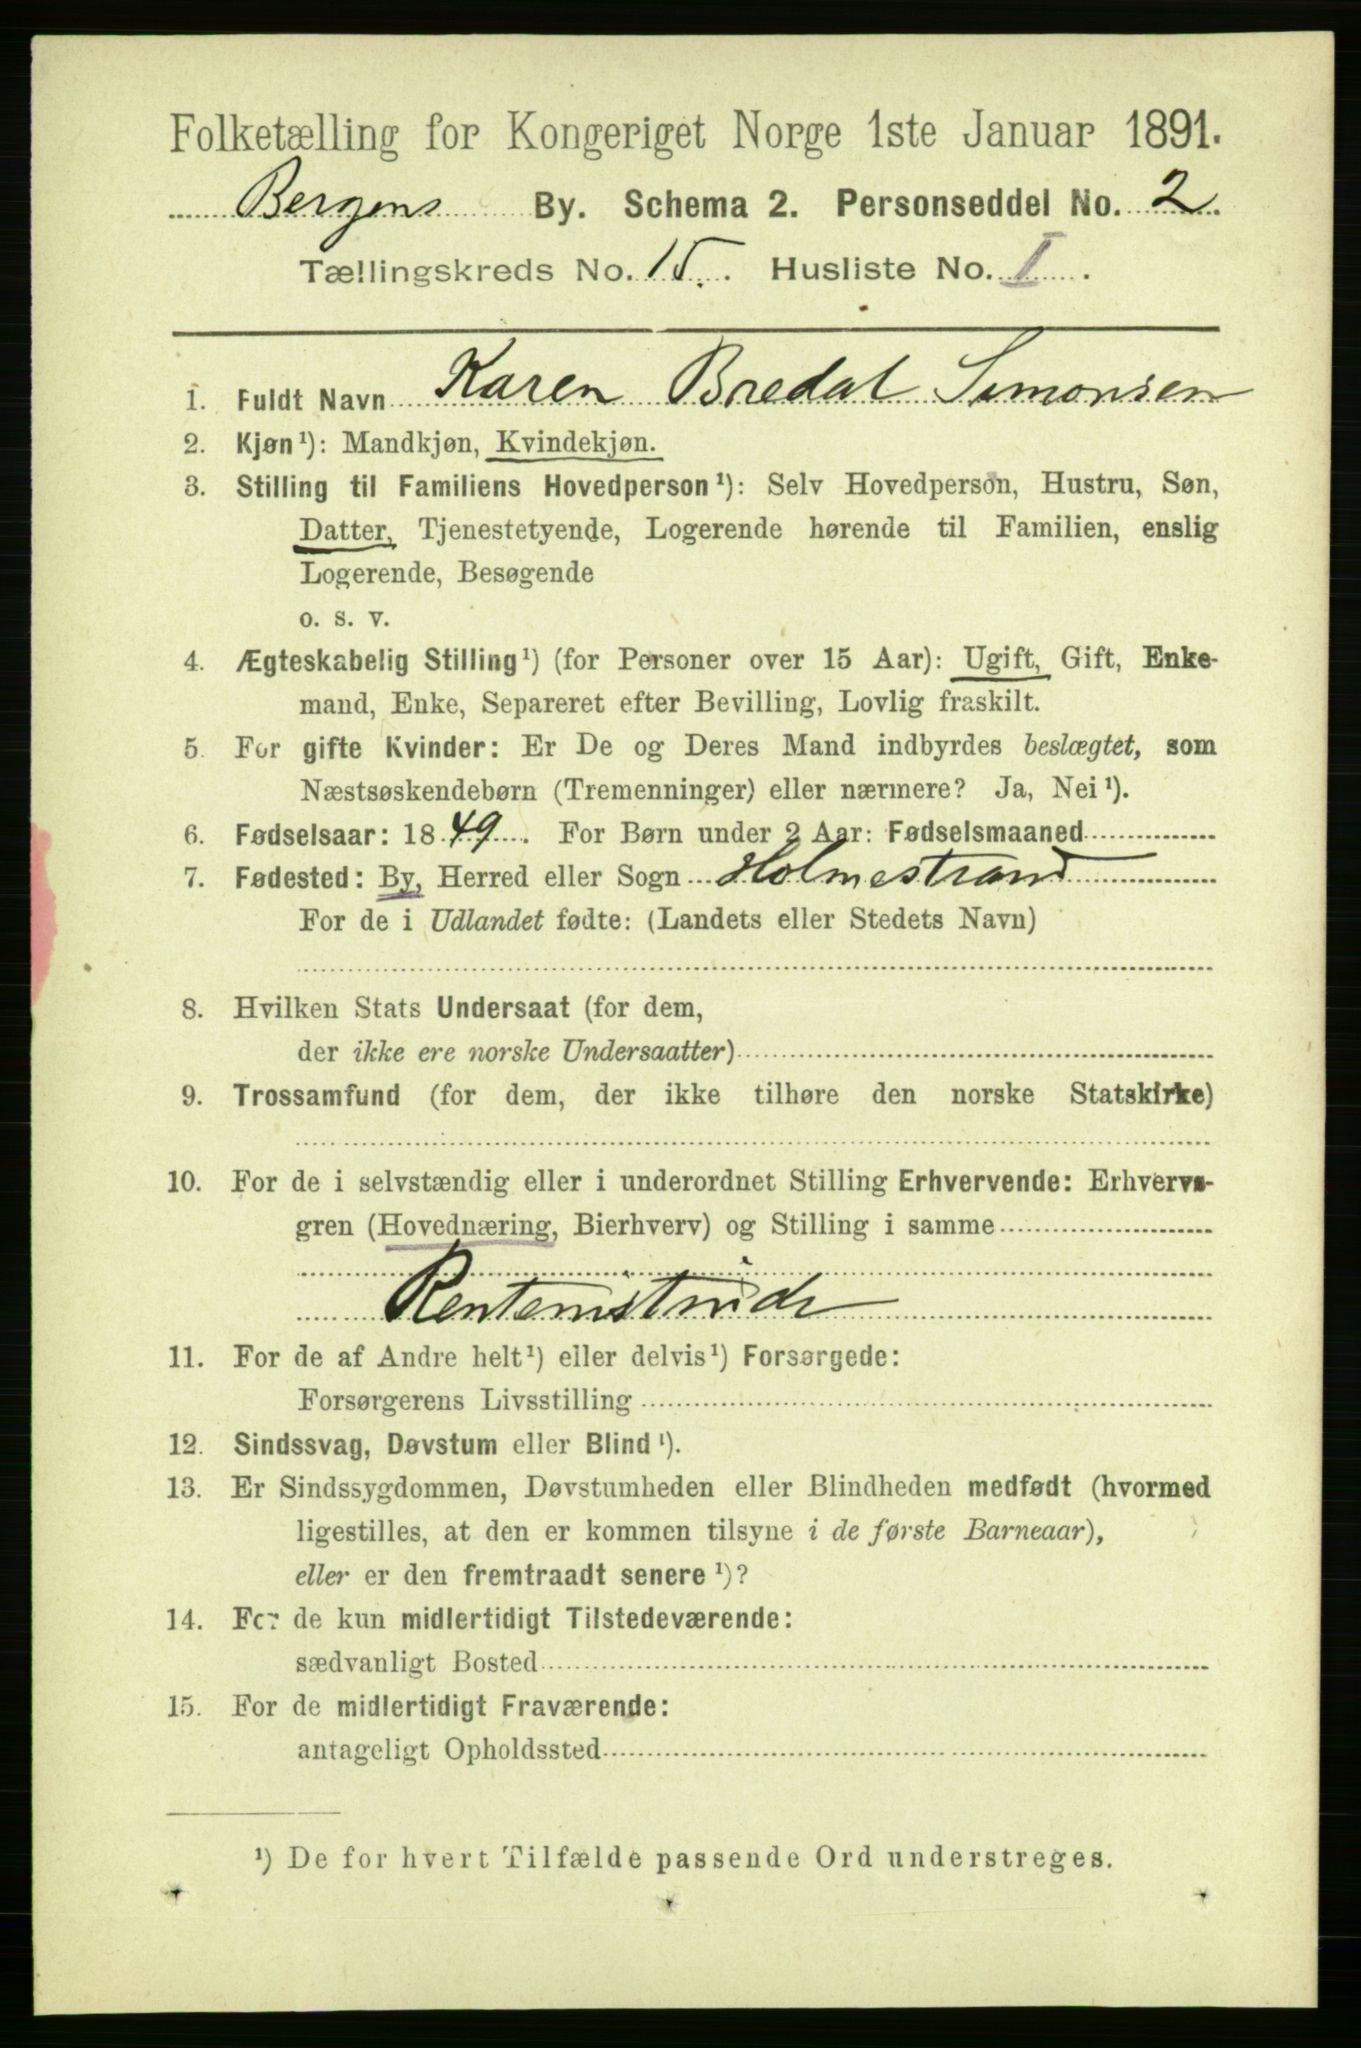 Folketælling for Kongeriget Norge 1ste Januar 1891.
Bergens By. Schema 2. Personseddel No. 2.
Tællingskreds No. 15. Husliste No. I.
1. Fuldt Navn Karen Bredal Simonsen
2. Kjøn¹): Mandkjøn, Kvindekjøn.
3. Stilling til Familiens Hovedperson¹): Selv Hovedperson, Hustru, Søn,
Datter, Tjenestetyende, Logerende hørende til Familien, enslig
Logerende, Besøgende
o. s. v.
4. Ægteskabelig Stilling¹) (for Personer over 15 Aar): Ugift, Gift, Enke-
mand, Enke, Separeret efter Bevilling, Lovlig fraskilt.
5. For gifte Kvinder: Er De og Deres Mand indbyrdes beslægtet, som
Næstsøskendebørn (Tremenninger) eller nærmere? Ja, Nei¹).
6. Fødselsaar: 1849. For Børn under 2 Aar: Fødselsmaaned
7. Fødested: By, Herred eller Sogn Holmestrand
For de i Udlandet fødte: (Landets eller Stedets Navn)
8. Hvilken Stats Undersaat (for dem,
der ikke ere norske Undersaatter)
9. Trossamfund (for dem, der ikke tilhøre den norske Statskirke)
10. For de i selvstændig eller i underordnet Stilling Erhvervende: Erhvervs-
gren (Hovednæring, Bierhverv) og Stilling i samme
11. For de af Andre helt¹) eller delvis¹) Forsørgede:
Forsørgerens Livsstilling
12. Sindssvag, Døvstum eller Blind¹).
13. Er Sindssygdommen, Døvstumheden eller Blindheden medfødt (hvormed
ligestilles, at den er kommen tilsyne i de første Barneaar),
eller er den fremtraadt senere¹)?
14. For de kun midlertidigt Tilstedeværende:
sædvanligt Bosted
15. For de midlertidigt Fraværende:
antageligt Opholdssted
¹) De for hvert Tilfælde passende Ord understreges.